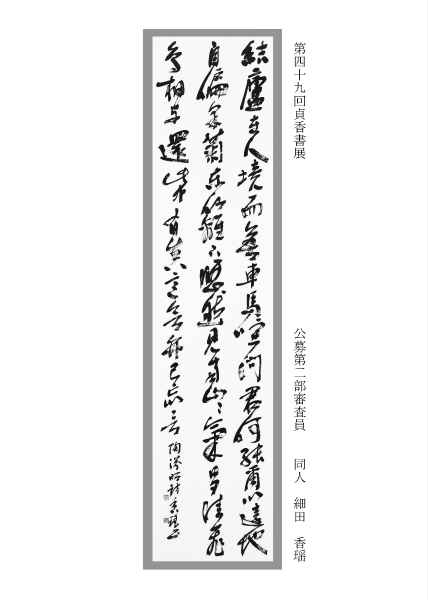 第四十九回貞香書展　公募第二部審査員　同人　細田　香瑶
結廬在人境而無車馬喧問君何能爾心遠地
自偏采菊東籬下悠然見南山〻氣日夕佳飛
鳥相与還此中有真意欲辨已忘言　陶淵明詩　香瑶